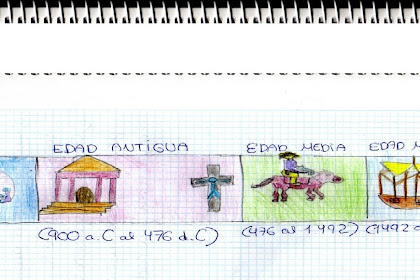 EDAD ANTIGUA EDAD MEDIA EDAD M
(900 a.C al 476 d.C) (476 al 1492) (1492 a